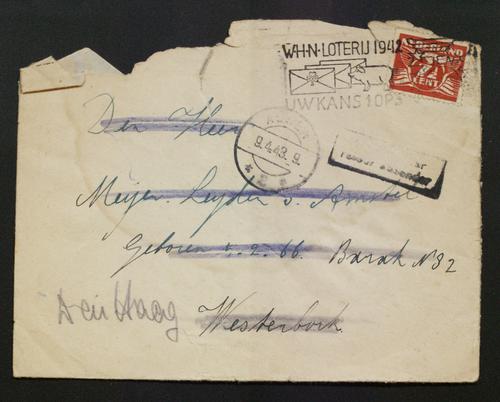 W·H·N·LOTERIJ 1942
UW KANS 1 OP 3
NEDERLAND
7½
CENT
9.4.43.9.
Den Heer
retour afzender
Meijer Leyden v. Amstel
Geboren 4.2.66. Barak N 82
Den Haag Westerbork